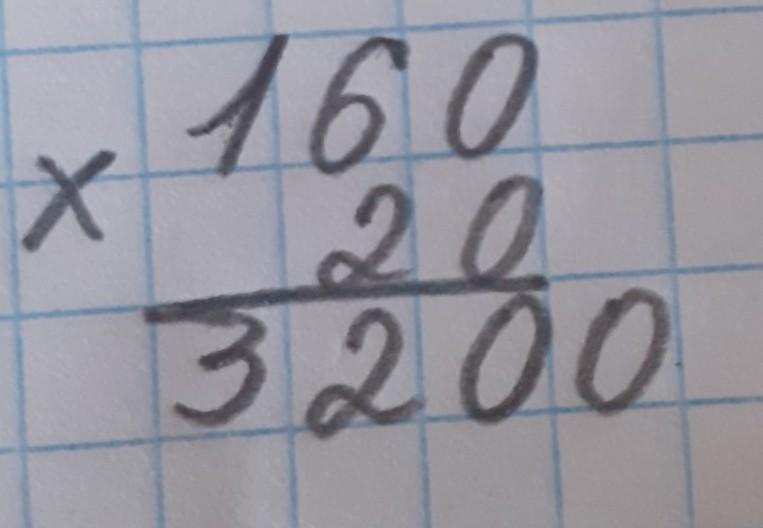 160
× 20
3200